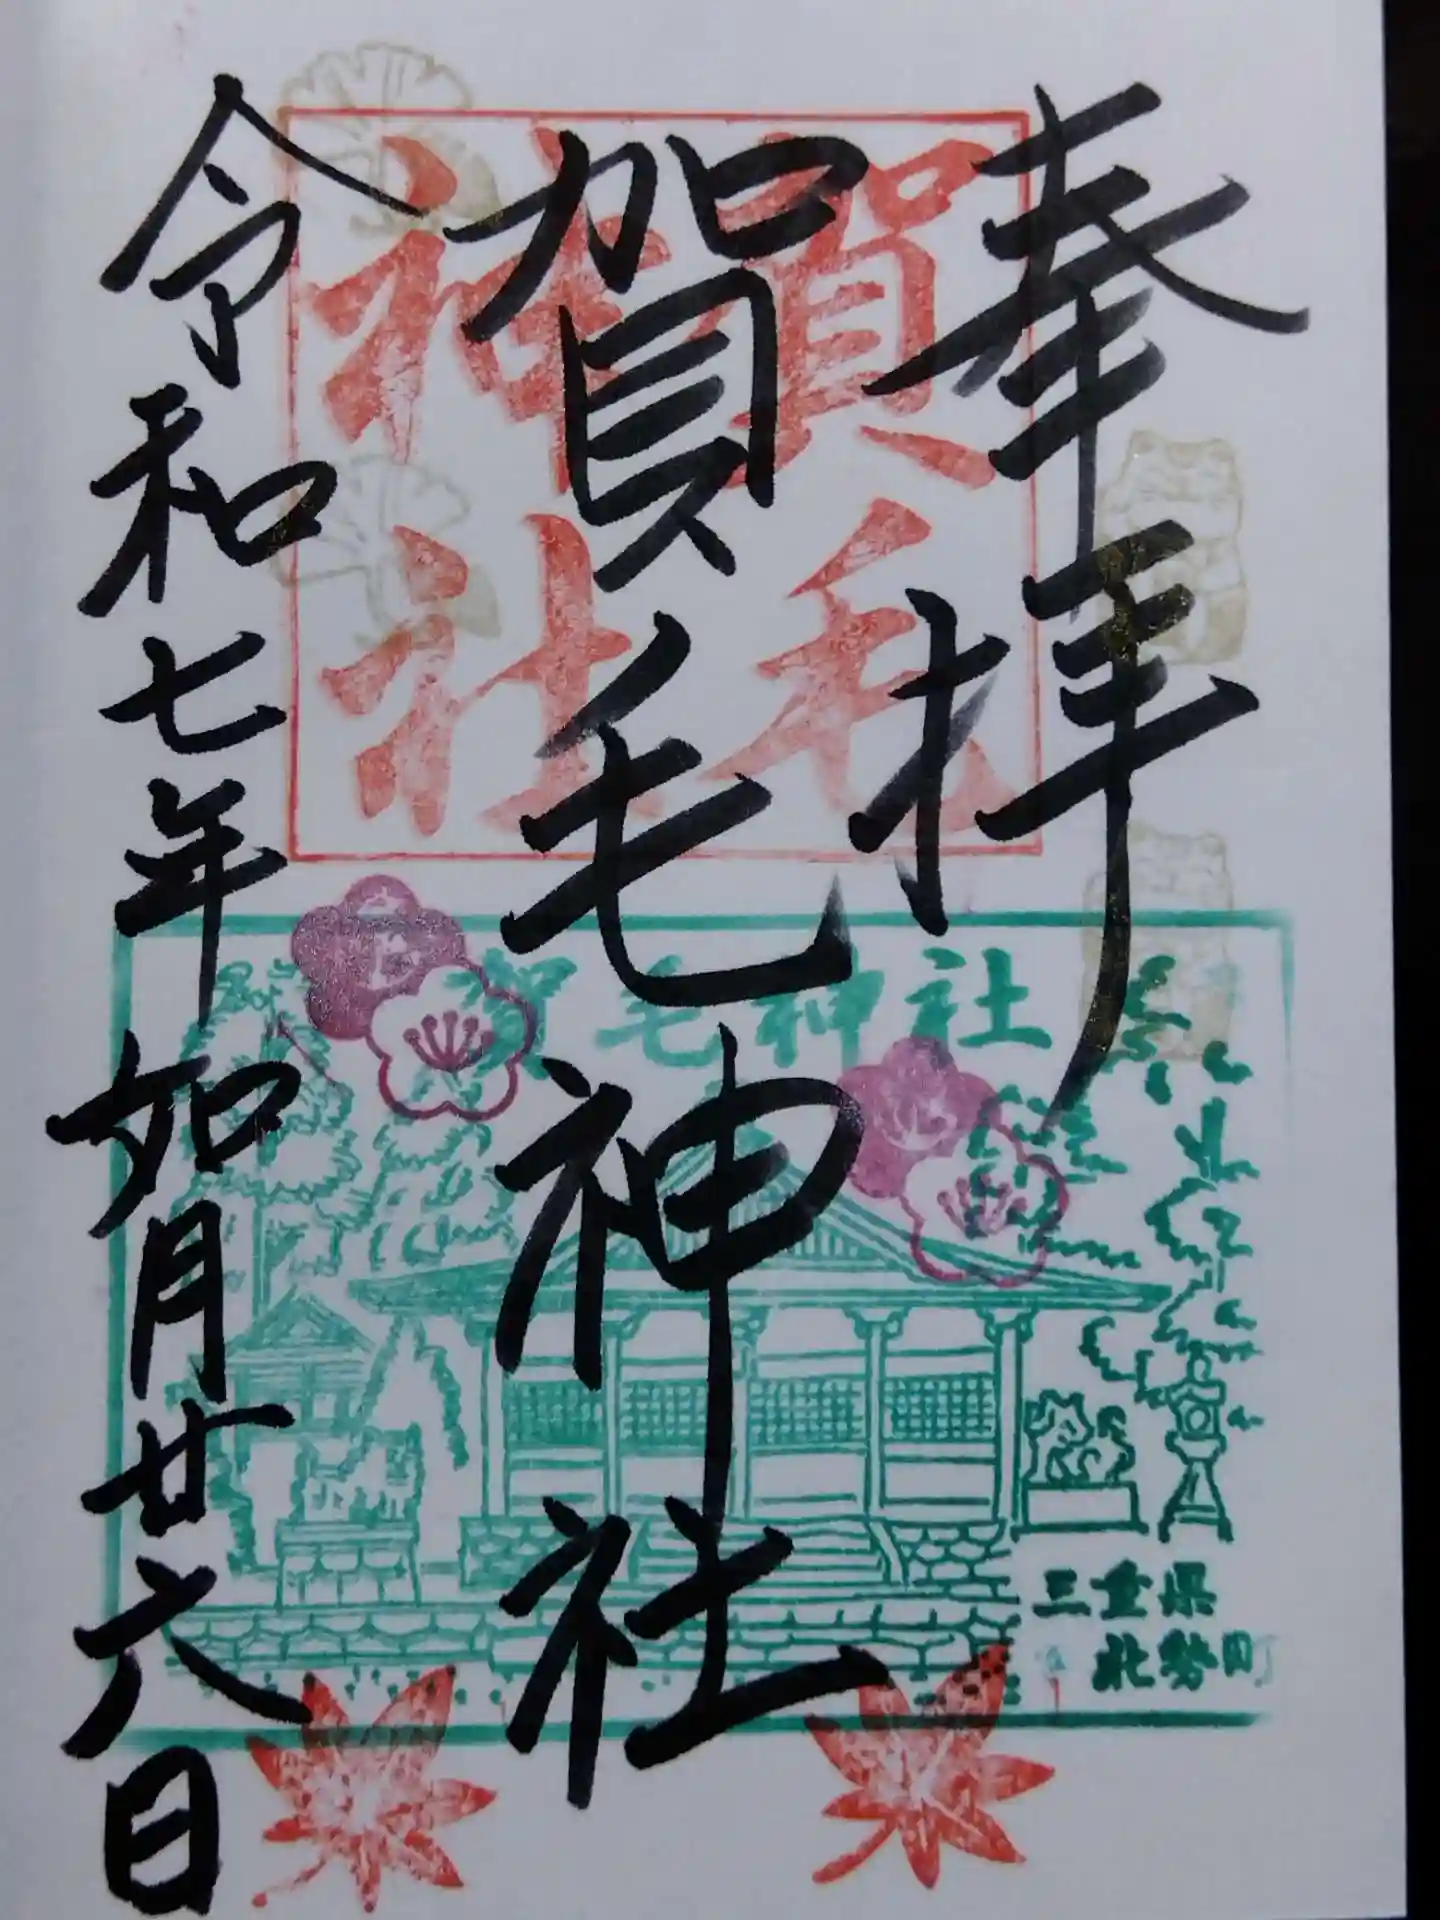 奉拝
賀毛神社
令和七年如月廿六日
賀毛
神社
賀毛神社
三重県
北勢町